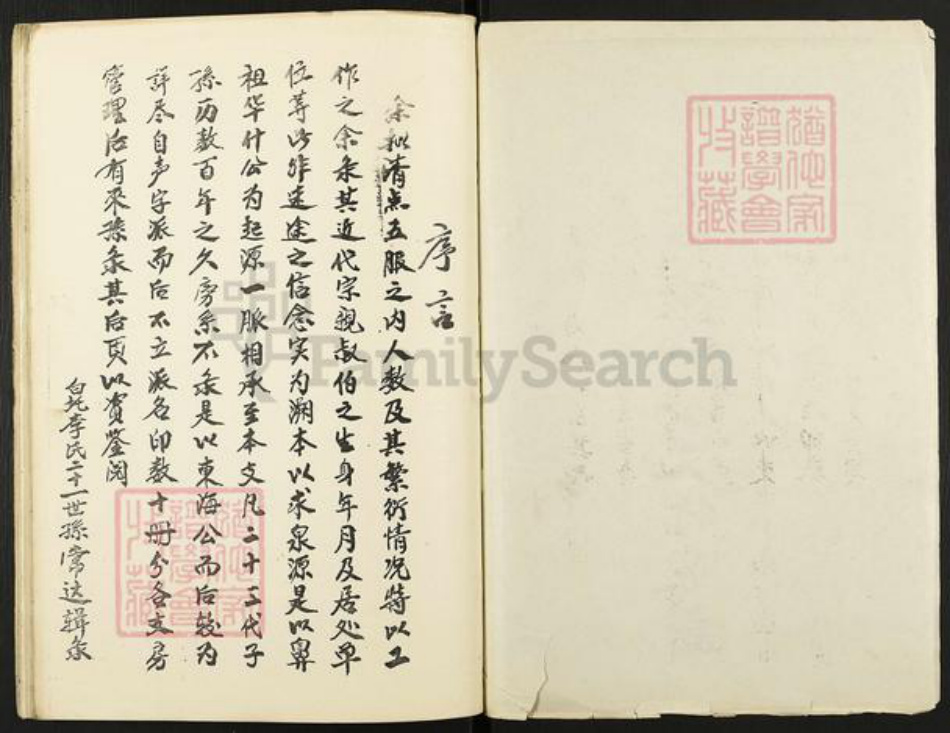 序言
余拟清点五服之内人数及其繁衍情况特以工
作之余录其近代宗親叔伯之生身年月及居处单
位等此非迷途之信念实为溯本以求泉源是以鼻
祖华什公为起源一脈相承至本支凡二十三代子
孫历数百年之久旁系不录是以東海公而后较为
詳尽自声字派而后不立派名印数十册分各支房
管理后有來孫录其后頁以资鉴阅
李氏二十一世孫常达辑录
猶他家譜學會收藏
猶他家譜學會收藏
FamilySearch